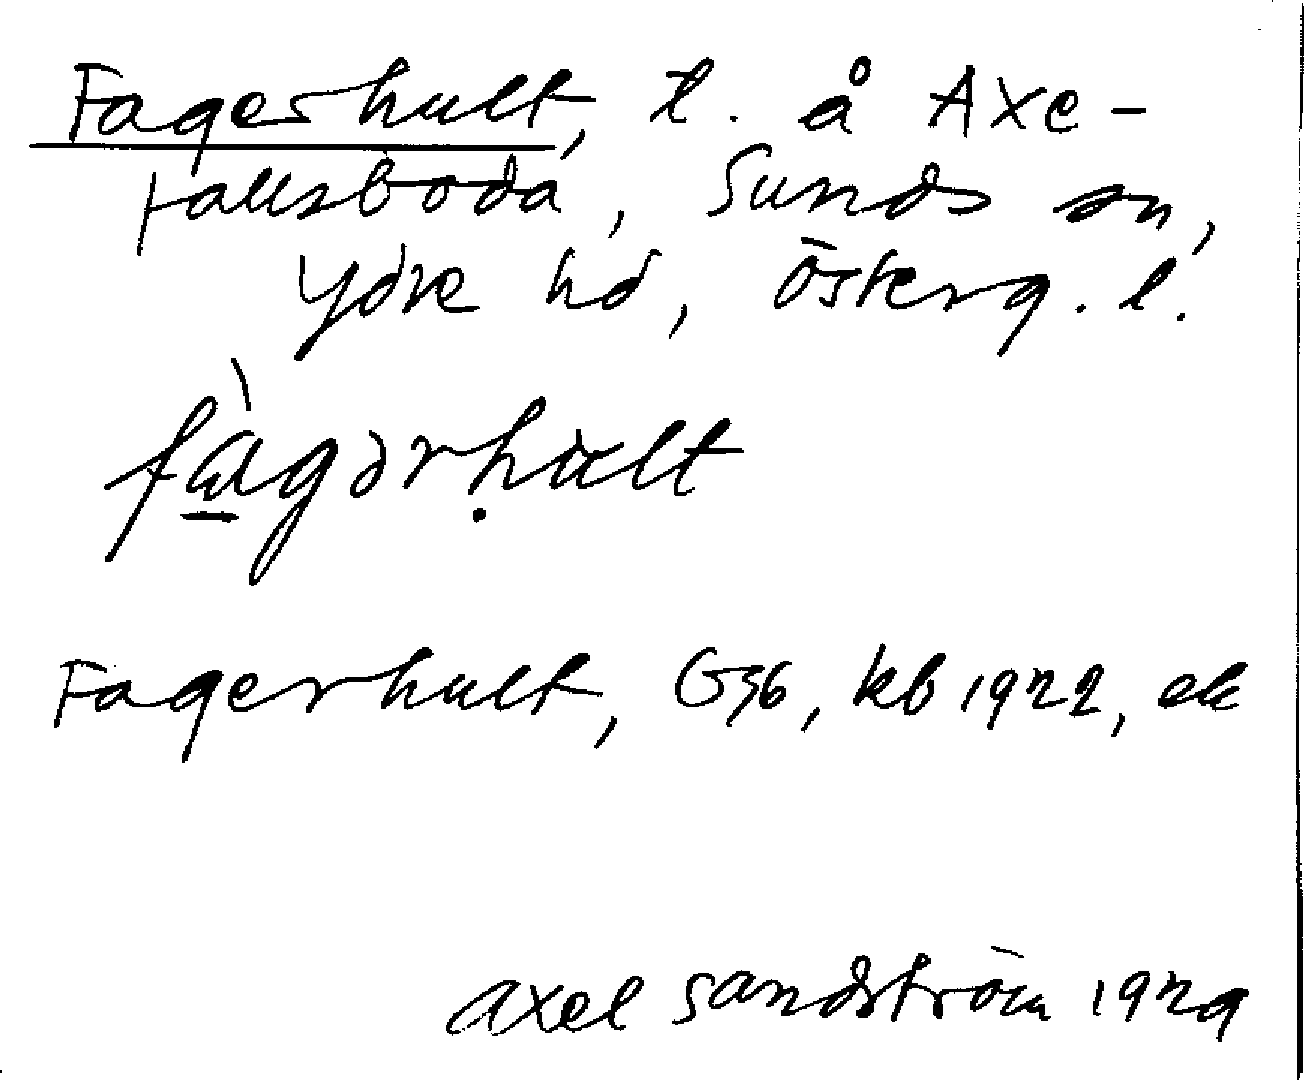 Fagerhult, t. å Axe-
fallsboda, Sunds sn,
Ydre hd, Österg. l.
fàgərhult
Fagerhult, G36, kb 1922, ek
Axel Sandström 1929